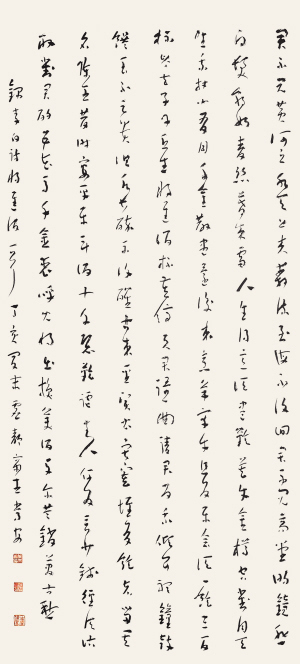 君不見黃河之水天上來奔流到海不復回君不見高堂明鏡悲
白髮朝如青絲暮成雪人生得意須盡歡莫使金樽空對月天
生我材必有用千金散盡還復來烹羊宰牛且為樂會須一飲三百
杯岑夫子丹丘生將進酒杯莫停與君歌一曲請君為我傾耳聽鐘鼓
饌玉不足貴但願長醉不復醒古來聖賢皆寂寞惟有飲者留其
名陳王昔時宴平樂斗酒十千恣歡謔主人何為言少錢徑須沽
取對君酌五花馬千金裘呼兒將出換美酒與爾同銷萬古愁
錄李白詩將進酒一首丁亥夏